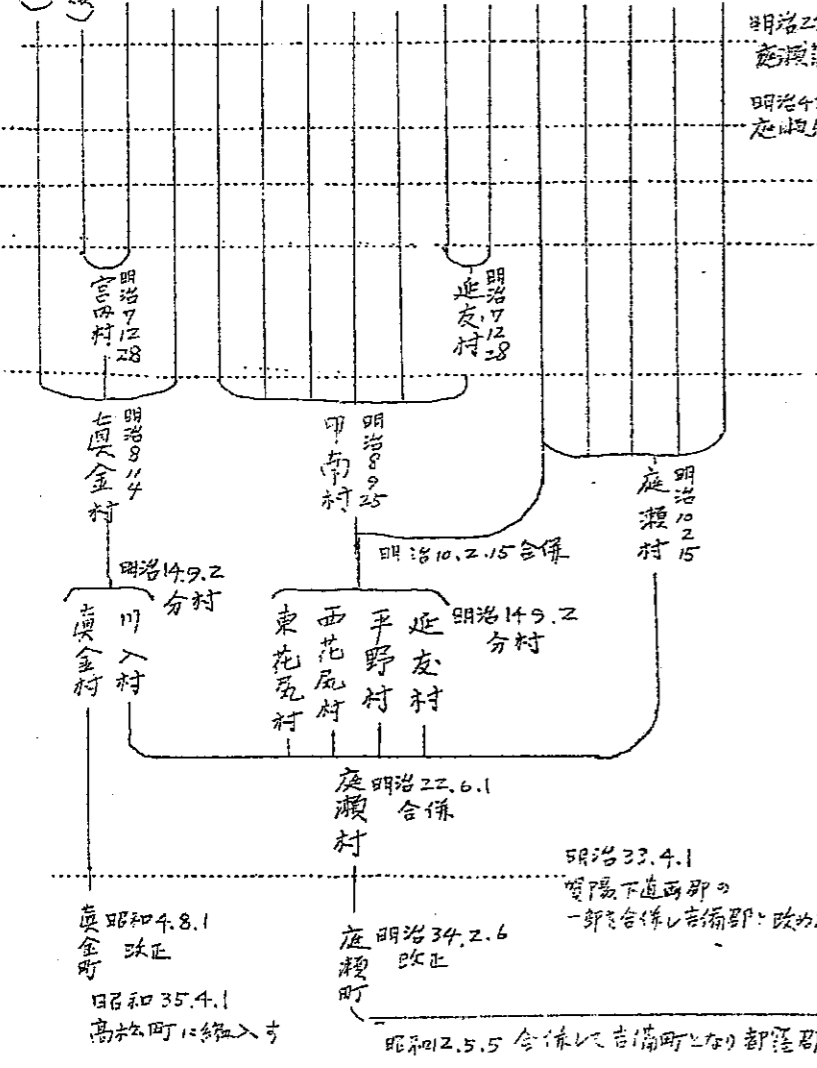 明治
庭瀬
明治4
宮内村
明治7 12 28
延友村
明治7 12 28
真金村
明治8 11 4
甲南村
明治8 9 25
庭瀬村
明治10 2 15
明治10.2.15合併
明治14.9.2
分村
真金村
川入村
東花尻村
西花尻村
平野村
延友村
明治14 9.2
分村
庭瀬村
明治22.6.1
合併
明治33.4.1
賀陽下道両郡の
一部を合併し吉備郡と改め
真金町
昭和4.8.1
改正
庭瀬町
明治34.2.6
改正
昭和35.4.1
高松町に編入す
昭和12.5.5 合併して吉備町となり都窪郡